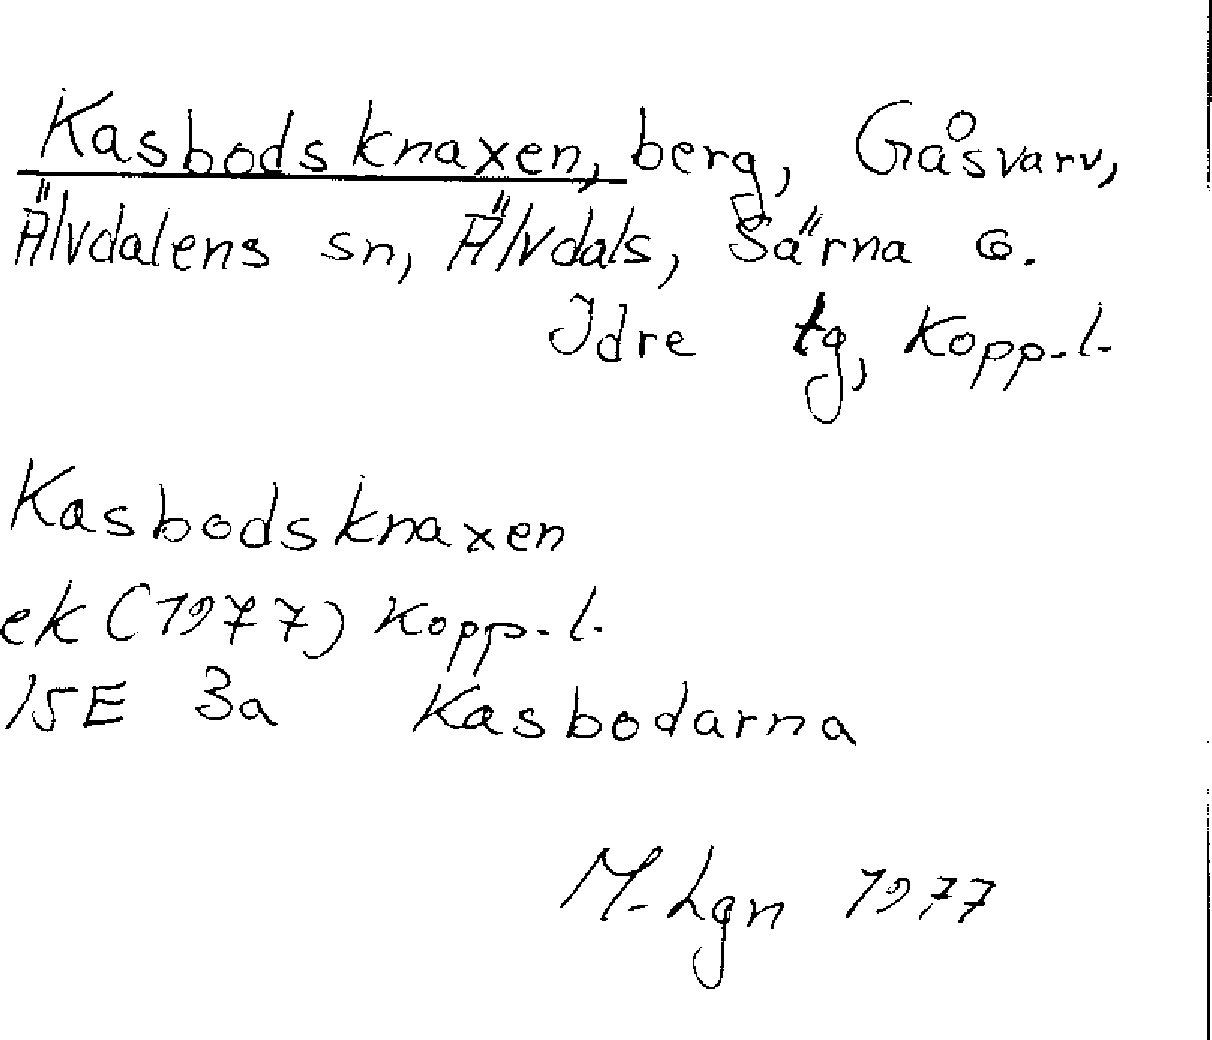 Kasbodsknaxen, berg, Gåsvarv,
Älvdalens sn, Älvdals, Särna o.
Idre tg, Kopp.l.
Kasbodsknaxen
ek (1977) Kopp.l.
15E 3a Kasbodarna
M. Lgn 1977